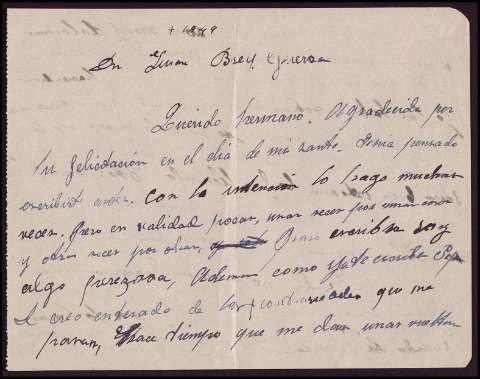 Dn Juan Brey Guerra
Querido hermano. Agradecida por
tu felicitación en el dia de mi santo. Tenia pensado
escribirt antes. con la intención lo hago muchas
veces. Pero en realidad pocas, unas veces por unas cosas
y otras veces por otras, para escribir soy
algo perezosa, Ademas como ya te escribe Pepe
te creo enterado de las que me
pasan, Hace tiempo que me dan unas